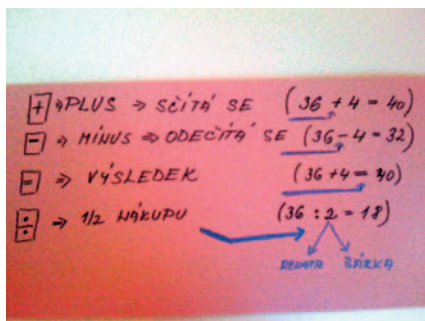 + ⇒ PLUS ⇒ SČÍTÁ SE (36 + 4 = 40)
- ⇒ MÍNUS ⇒ ODEČÍTÁ SE (36 - 4 = 32)
= ⇒ VÝSLEDEK (36 + 4 = 40)
÷ → 1/2 NÁKUPU (36 : 2 = 18)
RENATA ŠÁRKA